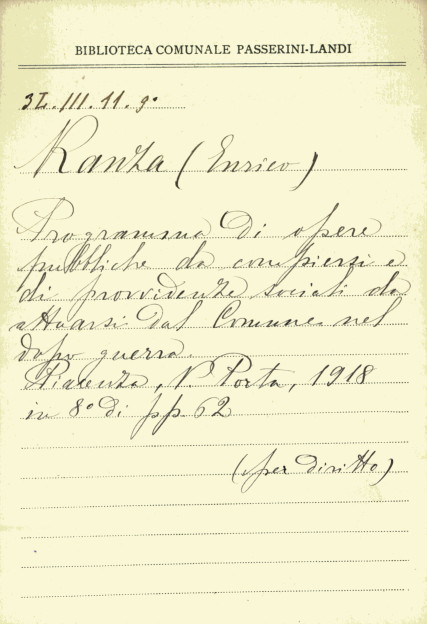 BIBLIOTECA COMUNALE PASSERINI-LANDI
3L.III.11.9º
Ranza (Enrico)
Programma di opere
pubbliche da compiersi e
di provvidenze sociali da
attuarsi dal Comune nel
dopo guerra.
Piacenza, V. Porta, 1918
in 8º di pp. 62
(per diritto)